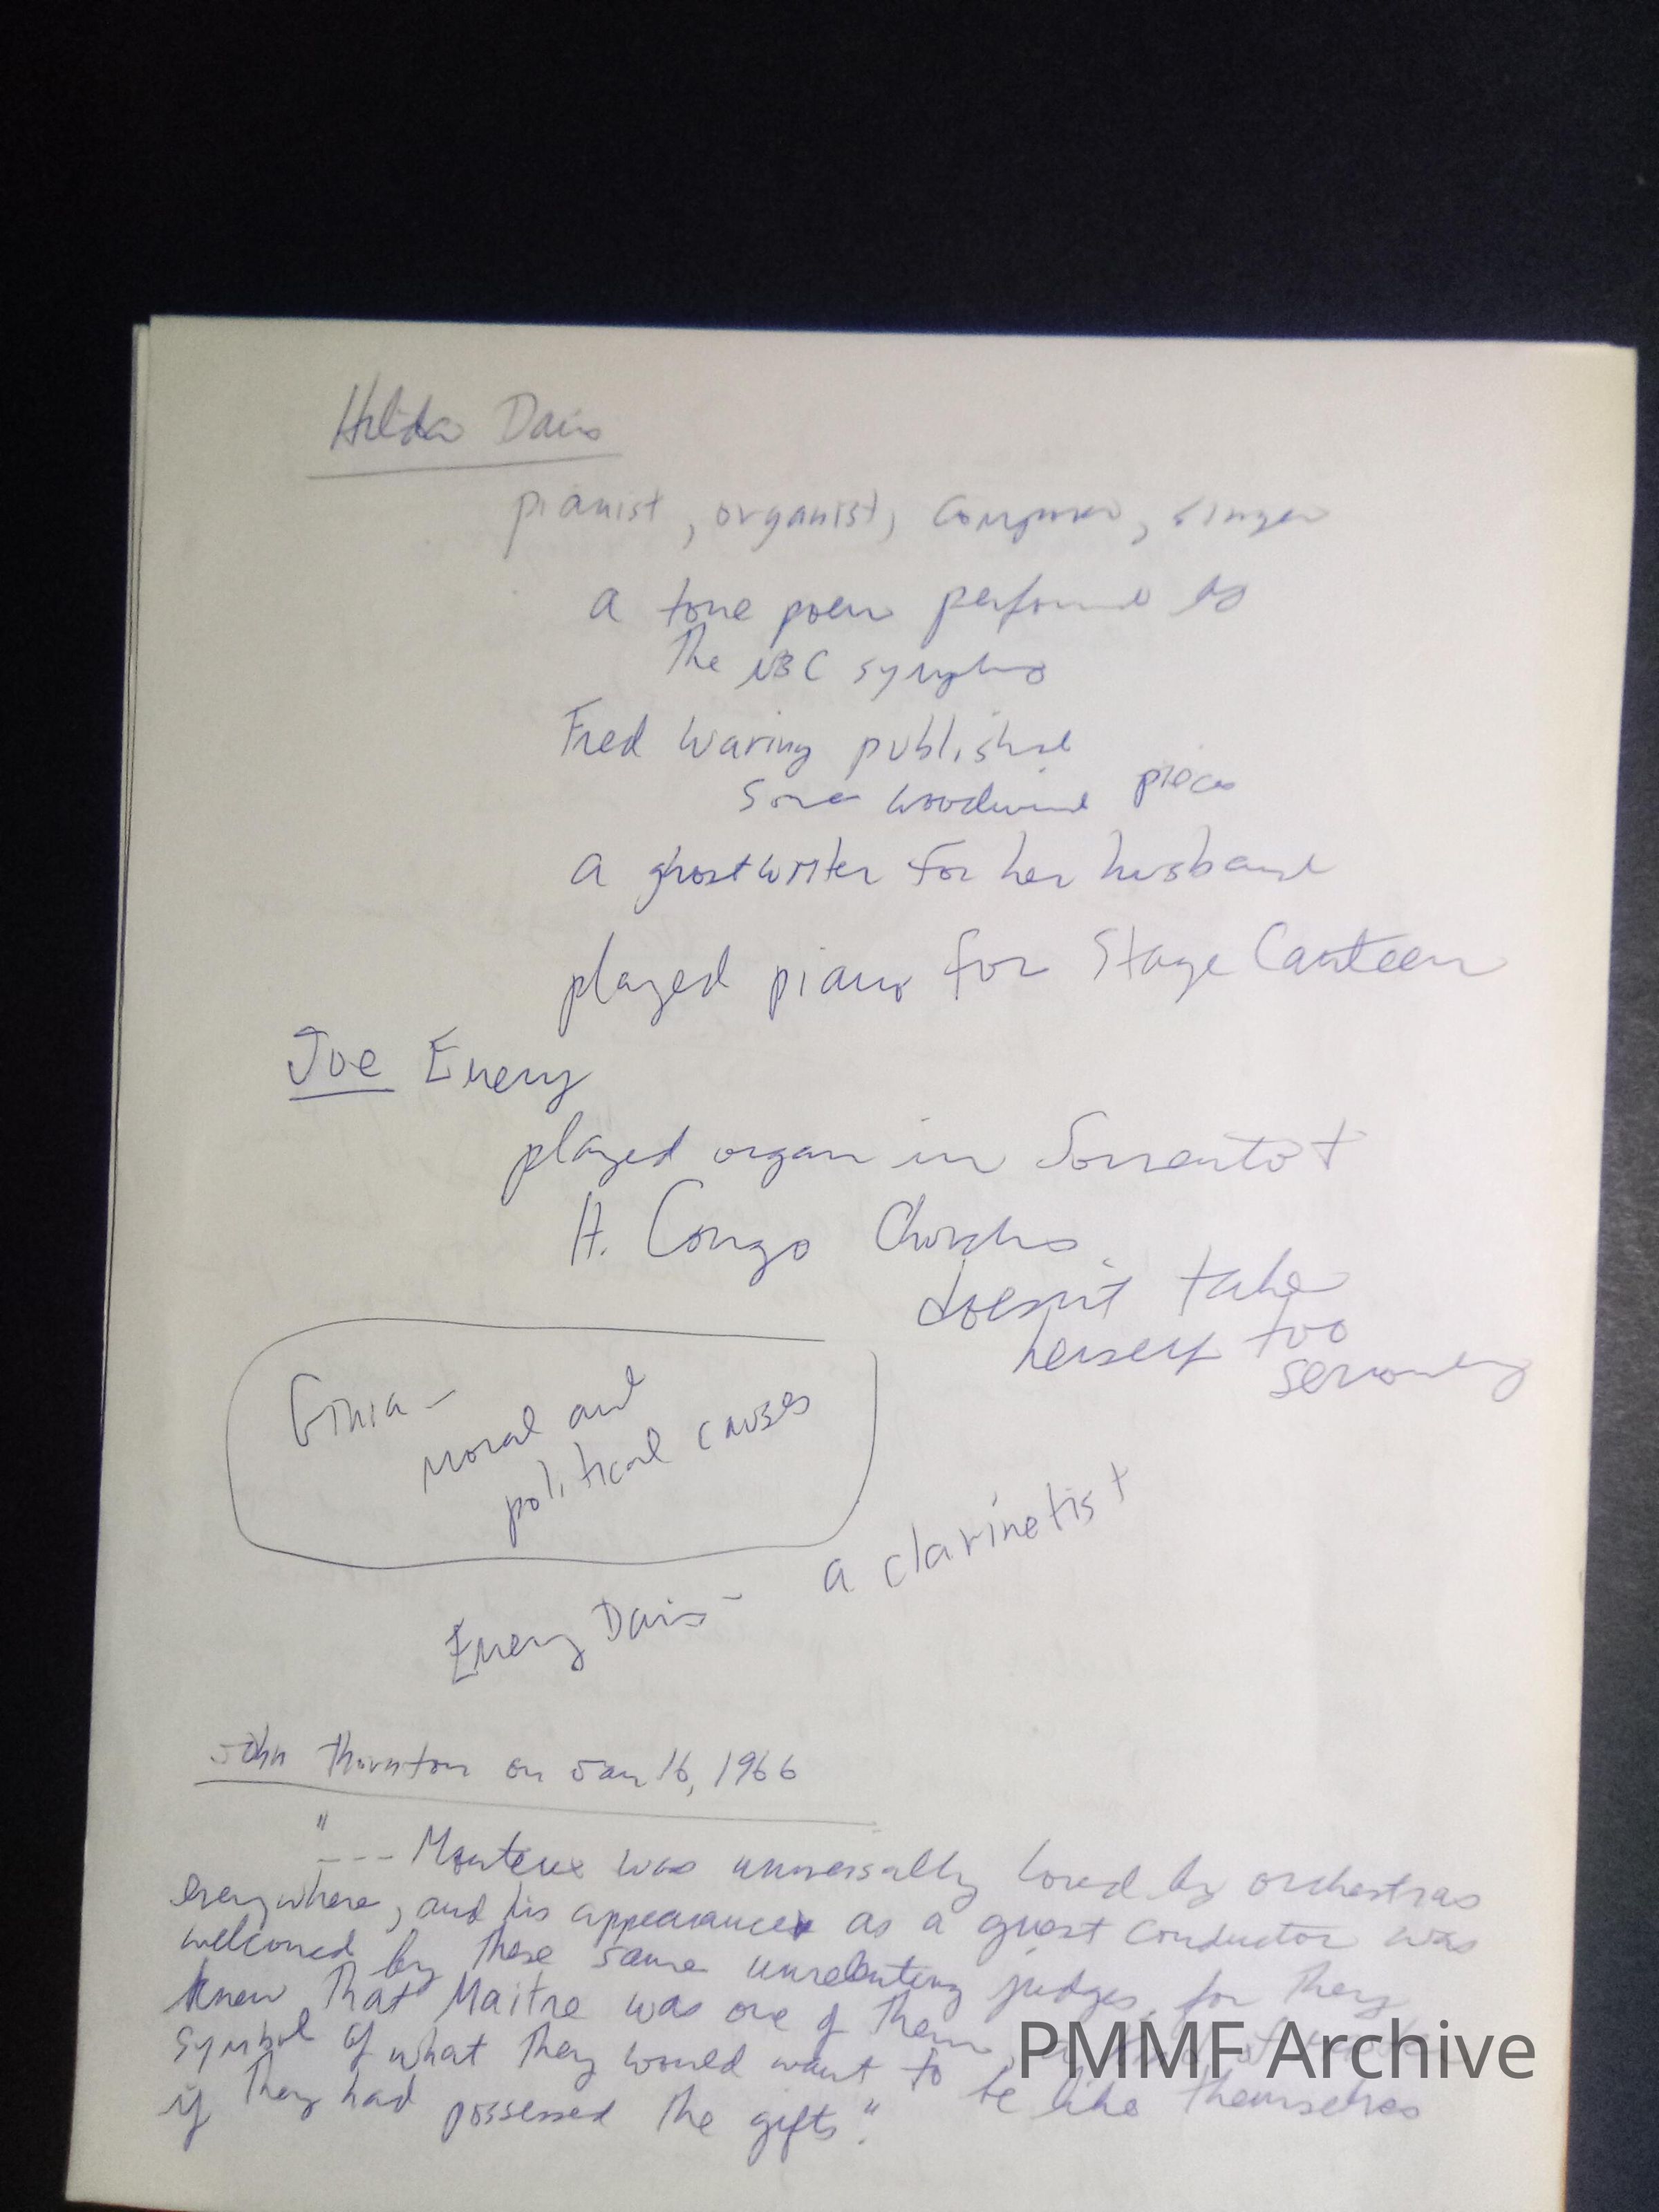 Hilda Davis
pianist, organist, composer, singer
a tone poem performed by
The NBC symphony
Fred Waring published
some woodwind pieces
a ghostwriter for her husband
played piano for Stage Canteen
Joe Emery
played organ in Sorrento +
H. Congo Churches.
doesn't take
herself too
seriously
Ginia -
moral and
political causes
a clarinetist
Emery Davis -
John Thornton on Jan 16, 1966
"--- Monteux was universally loved by orchestras
everywhere, and his appearances as a guest conductor was
welcomed by these same unrelenting judges, for they
knew that Maitre was one of them,
symbol of what they would want to be like themselves
if they had possessed the gifts."
PMMF Archive